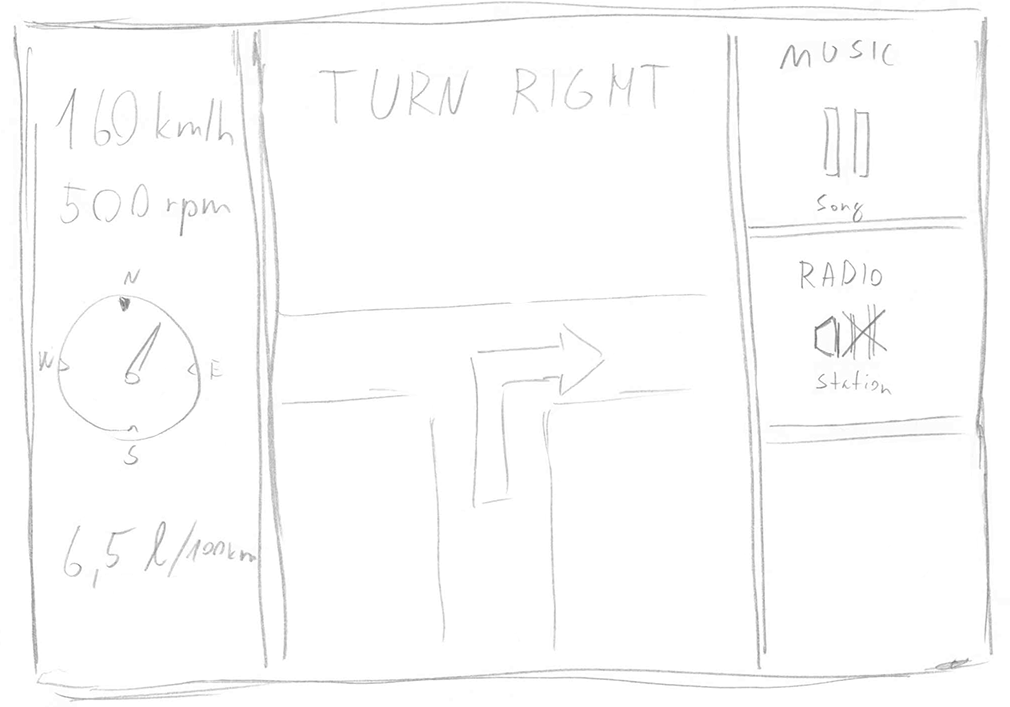 160 km/h
500 rpm
N
W
E
S
6,5 l/100km
TURN RIGHT
MUSIC
Song
RADIO
Station